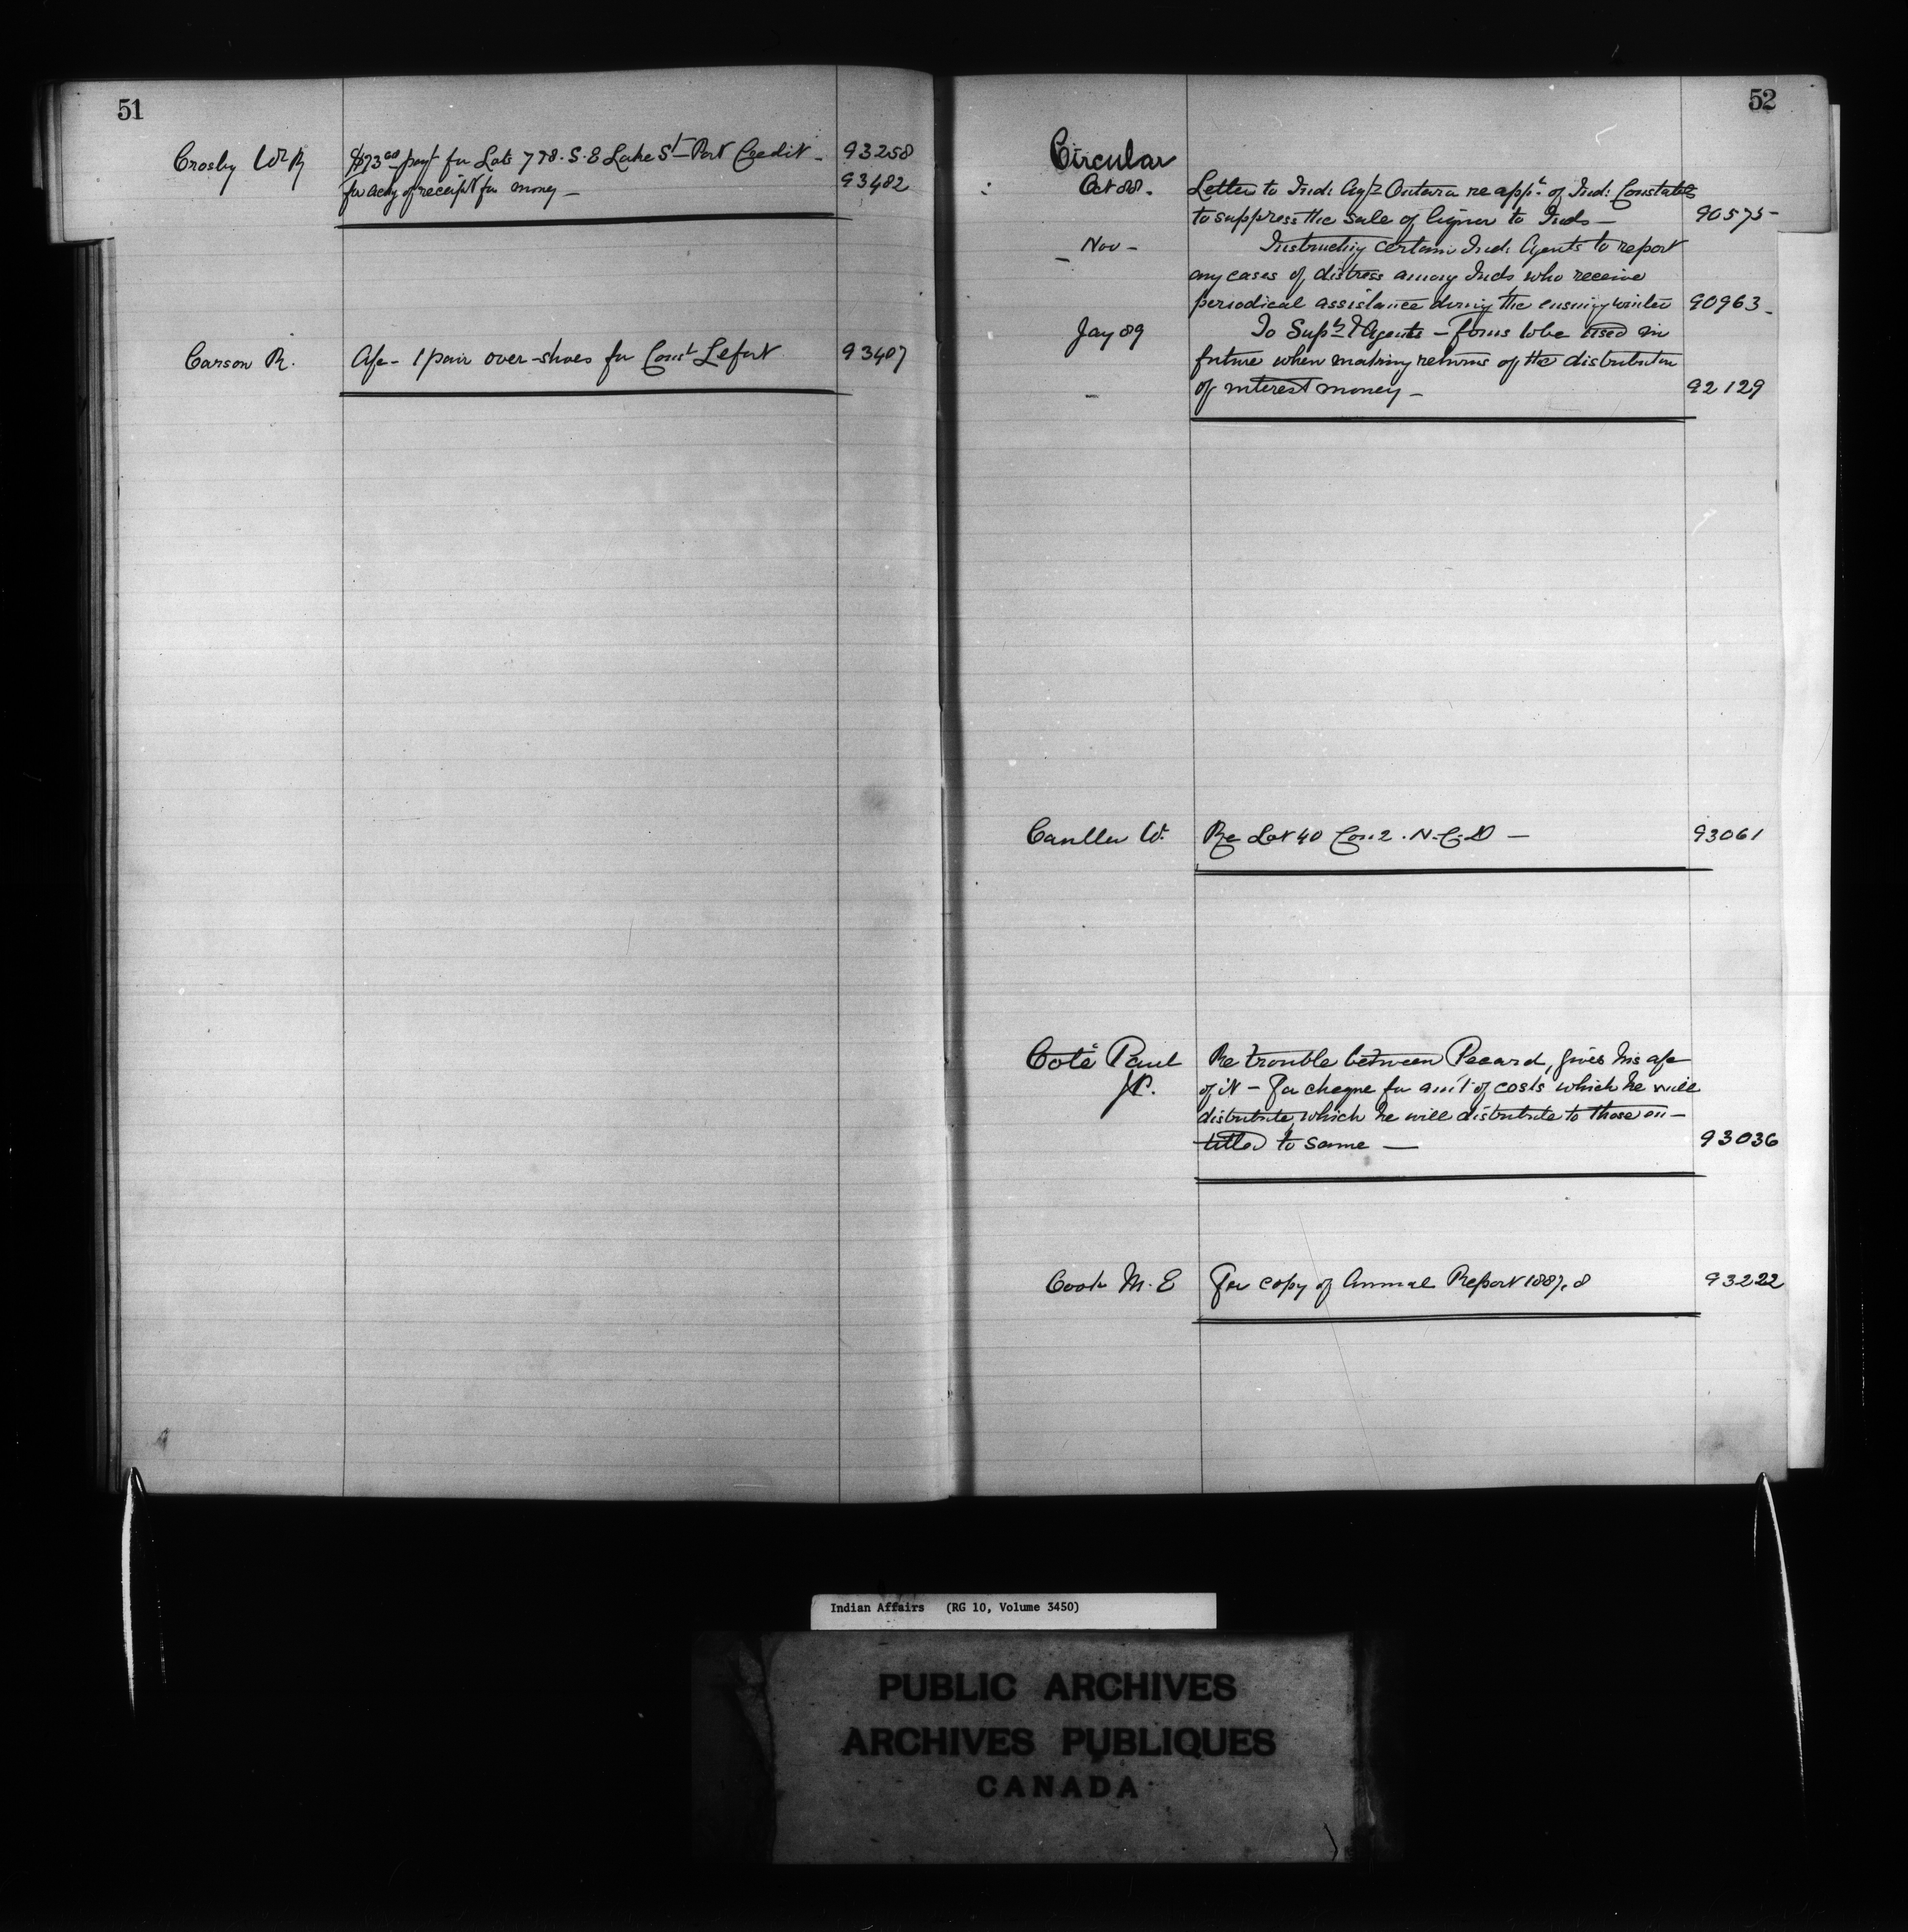 51
Crosby Wm R $73.00 payt for Lots 7 & 8. S. E Lake St - Port Credit - 93258
for ackg of receipt for money - 93482
Carson R. A/c - 1 pair over-shoes for Const Lefort 93407
52
Circular
Oct 88. Letter to Ind: Agts Ontario re appt. of Ind: Constables
to suppress the sale of liquor to Inds - 90575 -
Nov - Instructing certain Ind: Agents to report
any cases of distress among Inds who receive
periodical assistance during the ensuing winter 90963 -
Jay 89 To Supts & Agents - forms to be used in
future when making returns of the distribution
of interest money - 92129
W. Re Lot 40 Con: 2. N. C. D - 93061
Coté Paul Re trouble between Pecard, gives his a/c
J.P. of it - For cheque for amt of costs which he will
distribute, which he will distribute to those en-
titled to same - 93036
Cook M. E For copy of Annual Report 1887.8 93222
Indian Affairs (RG 10, Volume 3450)
PUBLIC ARCHIVES
ARCHIVES PUBLIQUES
CANADA